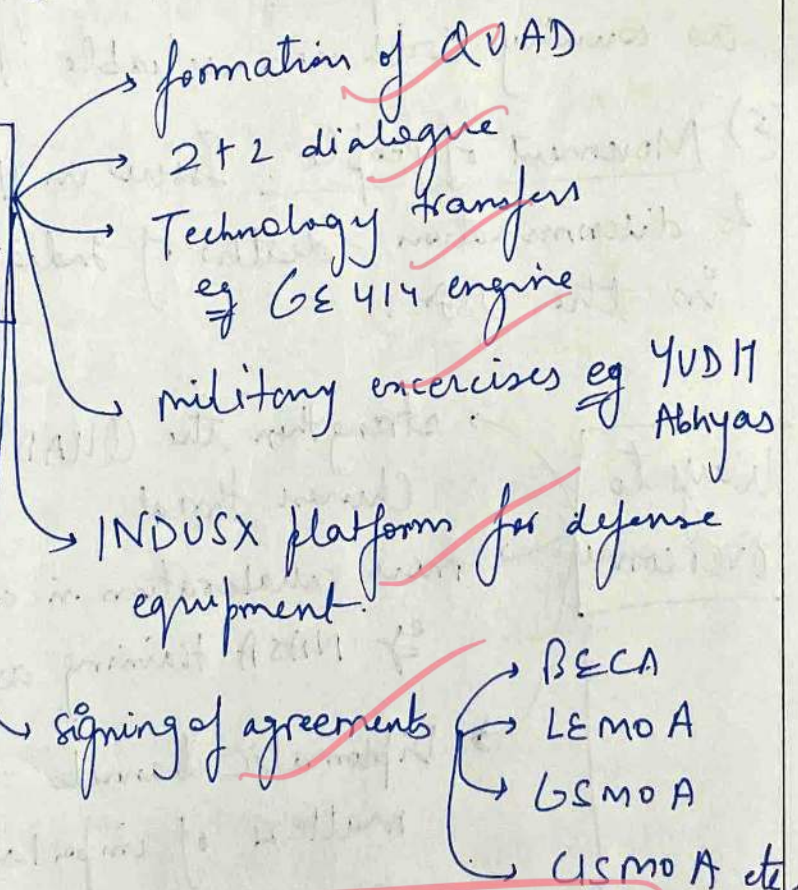 formation of QUAD
2+2 dialogue
Technology transfers
eg GE 414 engine
military excercises eg YUDH
Abhyas
INDUSX platforms for defense
equipment.
signing of agreements
BECA
LEMOA
GSMOA
CISMOA etc